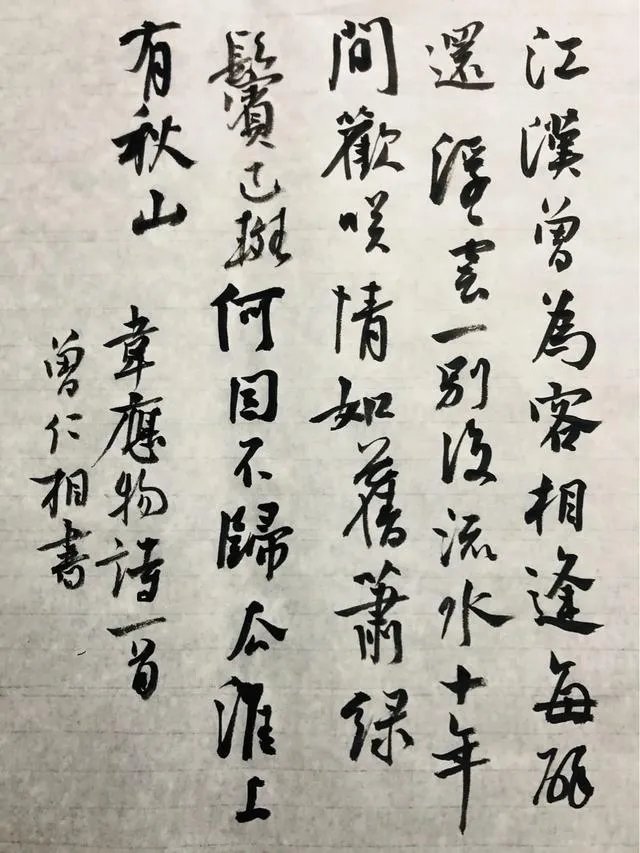 江漢曾為客相逢每醉
還浮雲一別後流水十年
間歡咲情如舊蕭綠
鬢已斑何因不歸去淮上
有秋山
韋應物詩一首
曾仁相書